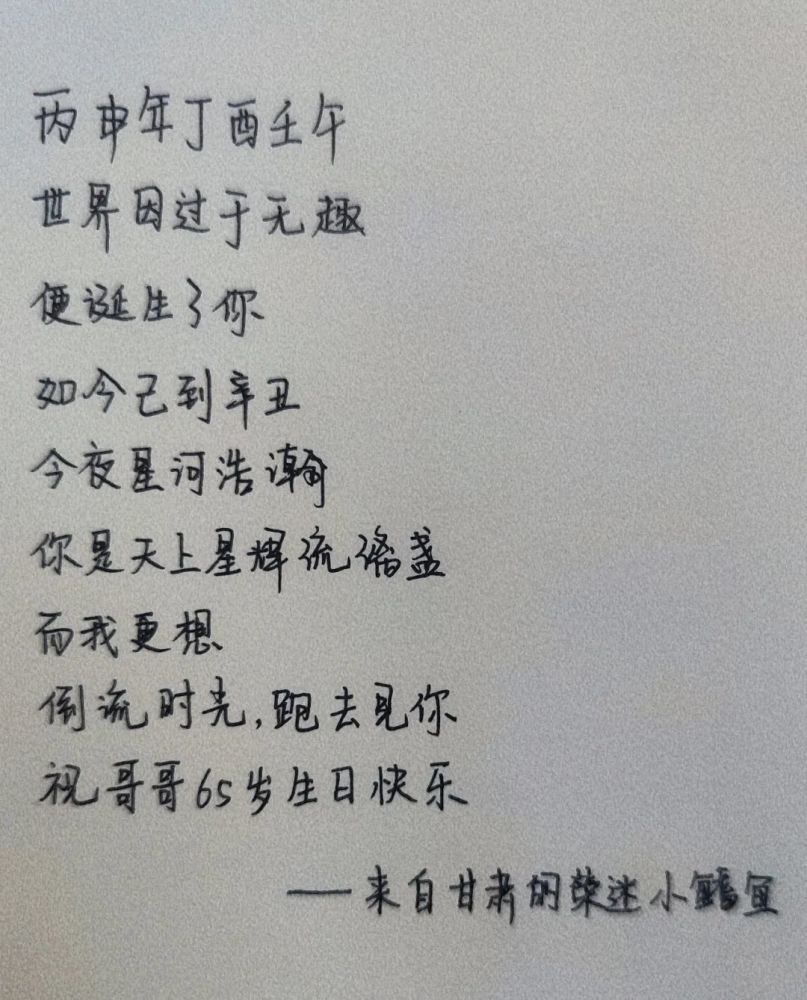 丙申年丁酉壬午
世界因过于无趣
便诞生了你
如今已到辛丑
今夜星河浩瀚
你是天上星辉流潏盏
而我更想
倒流时光,跑去见你
祝哥哥65岁生日快乐
——来自甘肃的荣迷小鳕鱼